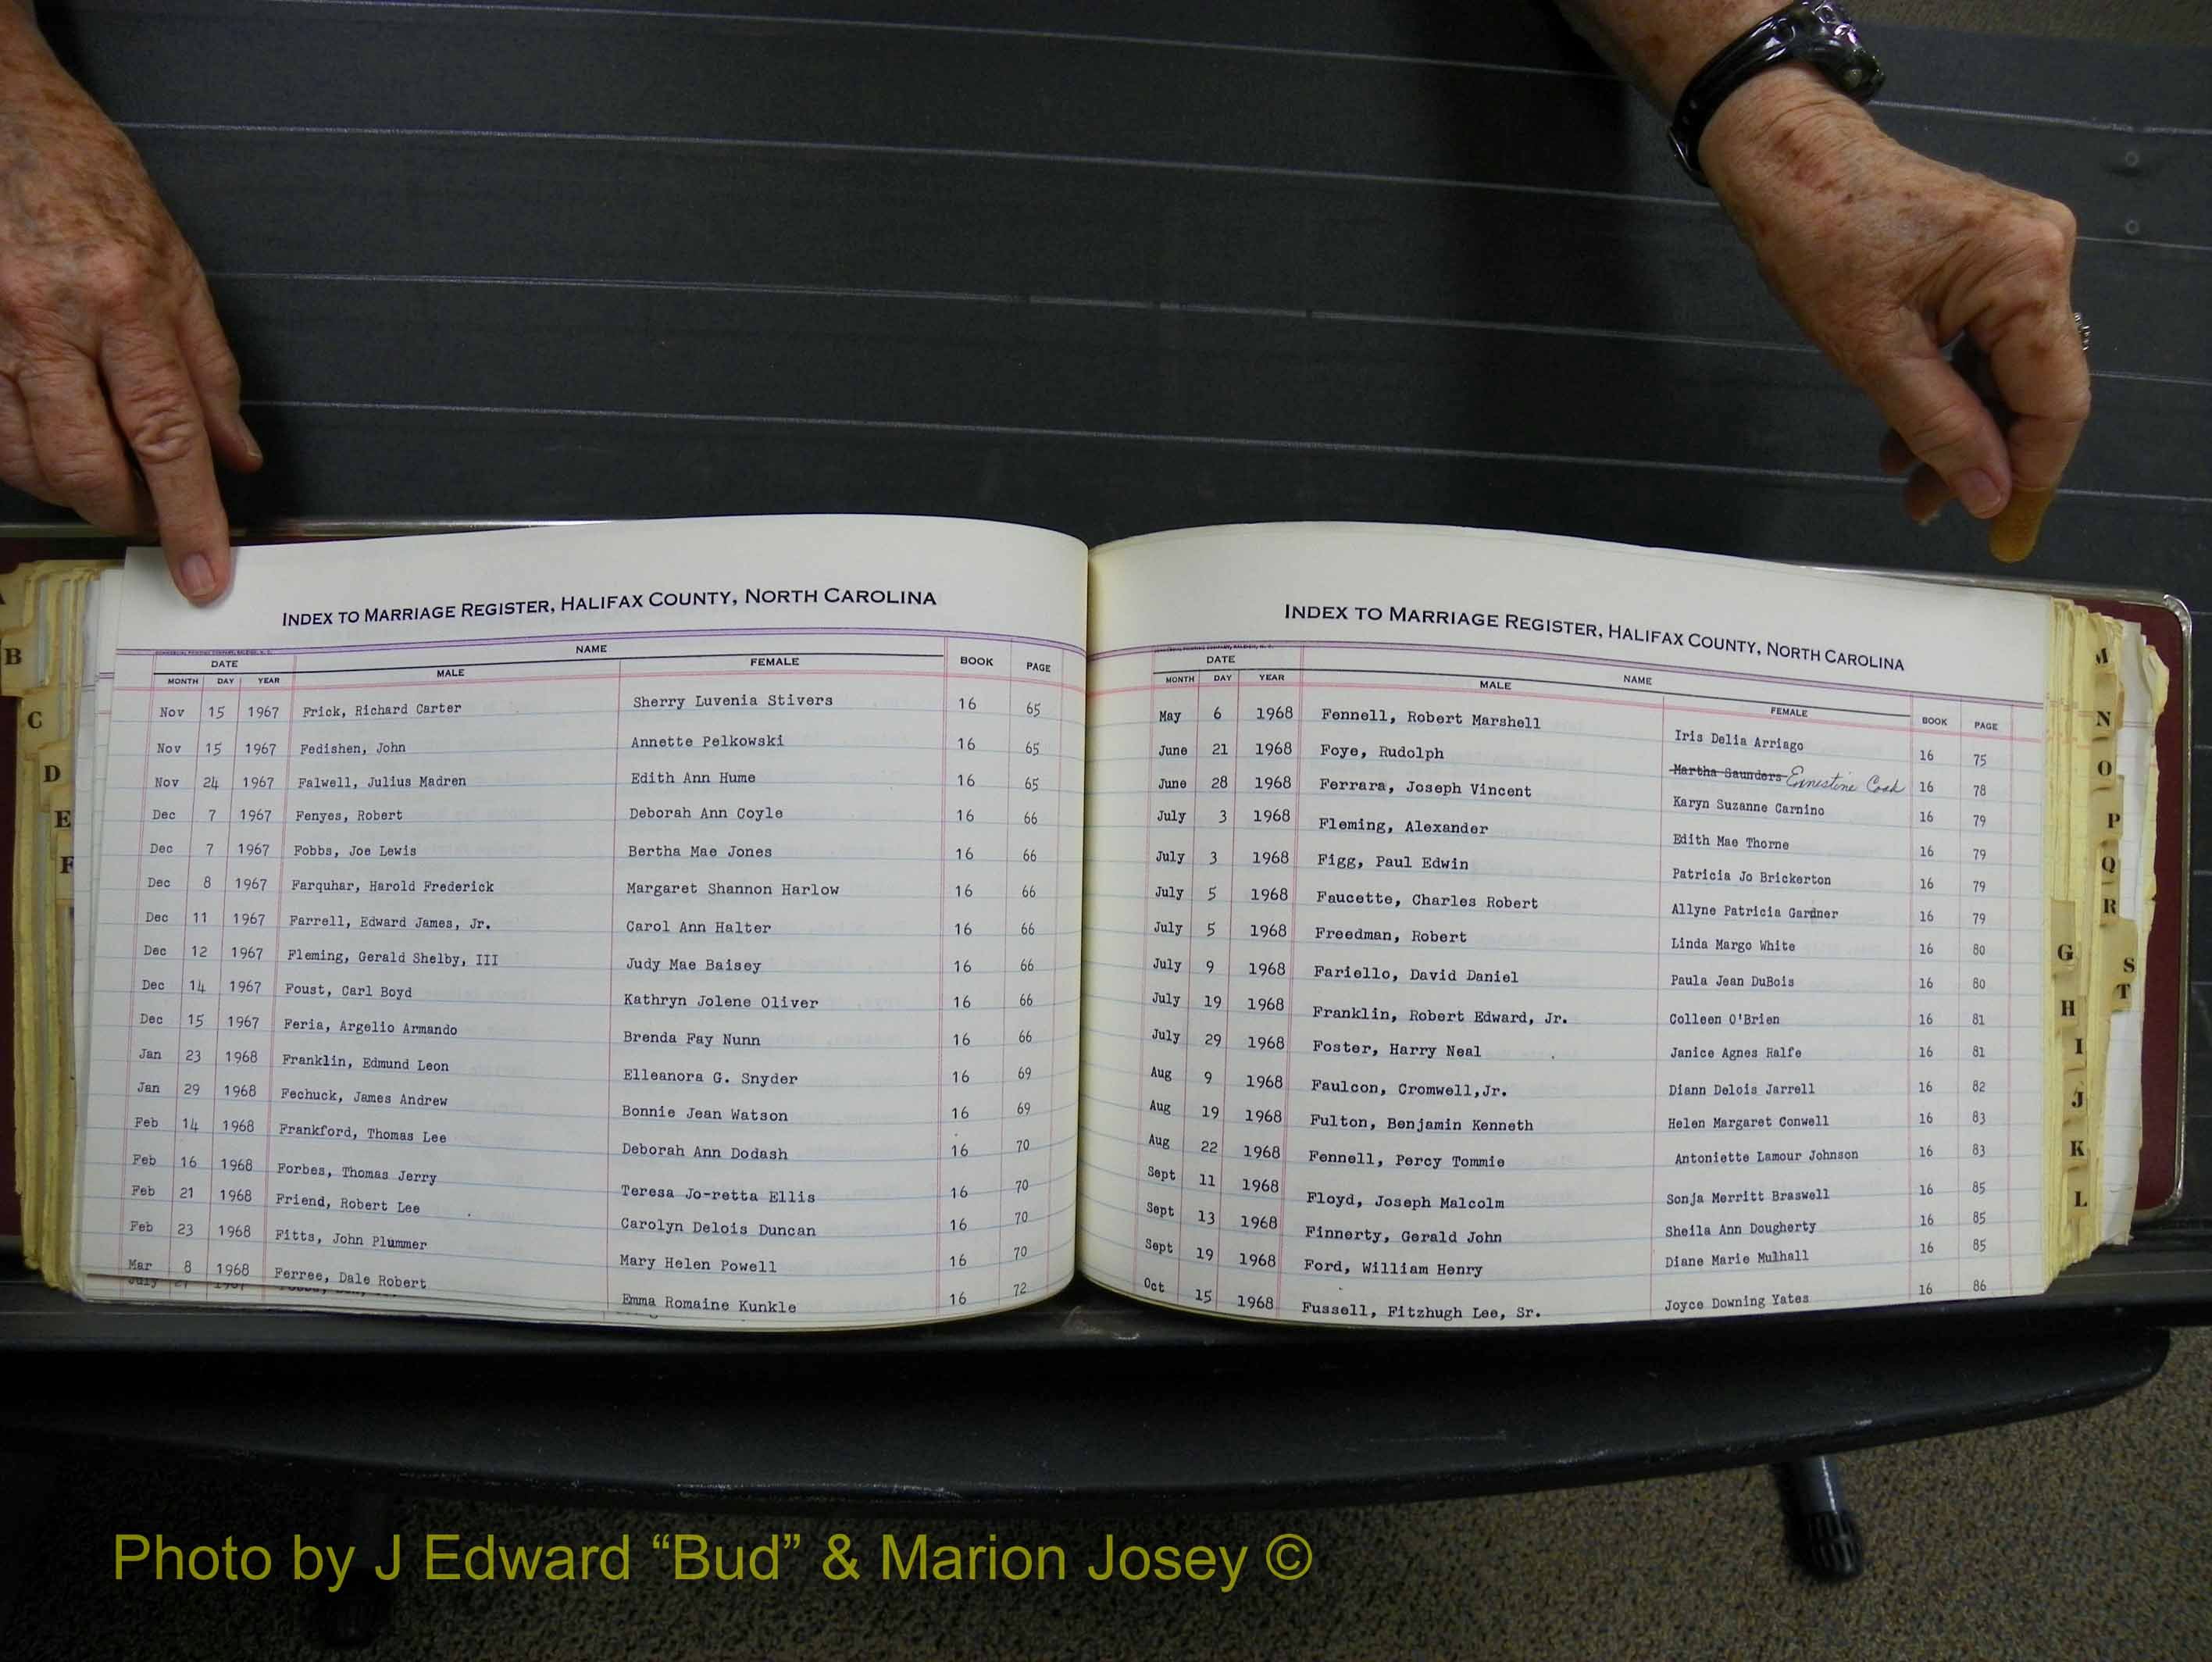 INDEX TO MARRIAGE REGISTER, HALIFAX COUNTY, NORTH CAROLINA
DATE NAME BOOK PAGE
MONTH DAY YEAR MALE FEMALE
Nov 15 1967 Frick, Richard Carter Sherry Luvenia Stivers 16 65
Nov 15 1967 Fedishen, John Annette Pelkowski 16 65
Nov 24 1967 Falwell, Julius Madren Edith Ann Hume 16 65
Dec 7 1967 Fenyes, Robert Deborah Ann Coyle 16 66
Dec 7 1967 Fobbs, Joe Lewis Bertha Mae Jones 16 66
Dec 8 1967 Farquhar, Harold Frederick Margaret Shannon Harlow 16 66
Dec 11 1967 Farrell, Edward James, Jr. Carol Ann Halter 16 66
Dec 12 1967 Fleming, Gerald Shelby, III Judy Mae Baisey 16 66
Dec 14 1967 Foust, Carl Boyd Kathryn Jolene Oliver 16 66
Dec 15 1967 Feria, Argelio Armando Brenda Fay Nunn 16 66
Jan 23 1968 Franklin, Edmund Leon Elleanora G. Snyder 16 69
Jan 29 1968 Fechuck, James Andrew Bonnie Jean Watson 16 69
Feb 14 1968 Frankford, Thomas Lee Deborah Ann Dodash 16 70
Feb 16 1968 Forbes, Thomas Jerry Teresa Jo-retta Ellis 16 70
Feb 21 1968 Friend, Robert Lee Carolyn Delois Duncan 16 70
Feb 23 1968 Fitts, John Plummer Mary Helen Powell 16 70
Mar 8 1968 Ferree, Dale Robert Emma Romaine Kunkle 16 72
INDEX TO MARRIAGE REGISTER, HALIFAX COUNTY, NORTH CAROLINA
DATE NAME
MONTH DAY YEAR MALE FEMALE BOOK PAGE
May 6 1968 Fennell, Robert Marshell Iris Delia Arriago 16 75
June 21 1968 Foye, Rudolph Martha Saunders Ernestine Cook 16 78
June 28 1968 Ferrara, Joseph Vincent Karyn Suzanne Carnino 16 79
July 3 1968 Fleming, Alexander Edith Mae Thorne 16 79
July 3 1968 Figg, Paul Edwin Patricia Jo Brickerton 16 79
July 5 1968 Faucette, Charles Robert Allyne Patricia Gardner 16 79
July 5 1968 Freedman, Robert Linda Margo White 16 80
July 9 1968 Fariello, David Daniel Paula Jean DuBois 16 80
July 19 1968 Franklin, Robert Edward, Jr. Colleen O'Brien 16 81
July 29 1968 Foster, Harry Neal Janice Agnes Ralfe 16 81
Aug 9 1968 Faulcon, Cromwell,Jr. Diann Delois Jarrell 16 82
Aug 19 1968 Fulton, Benjamin Kenneth Helen Margaret Conwell 16 83
Aug 22 1968 Fennell, Percy Tommie Antoniette Lamour Johnson 16 83
Sept 11 1968 Floyd, Joseph Malcolm Sonja Merritt Braswell 16 85
Sept 13 1968 Finnerty, Gerald John Sheila Ann Dougherty 16 85
Sept 19 1968 Ford, William Henry Diane Marie Mulhall 16 85
Oct 15 1968 Fussell, Fitzhugh Lee, Sr. Joyce Downing Yates 16 86
B
C
D
E
F
G
H
I
J
K
L
M
N
O
P
Q
R
S
T
Photo by J Edward “Bud” & Marion Josey ©